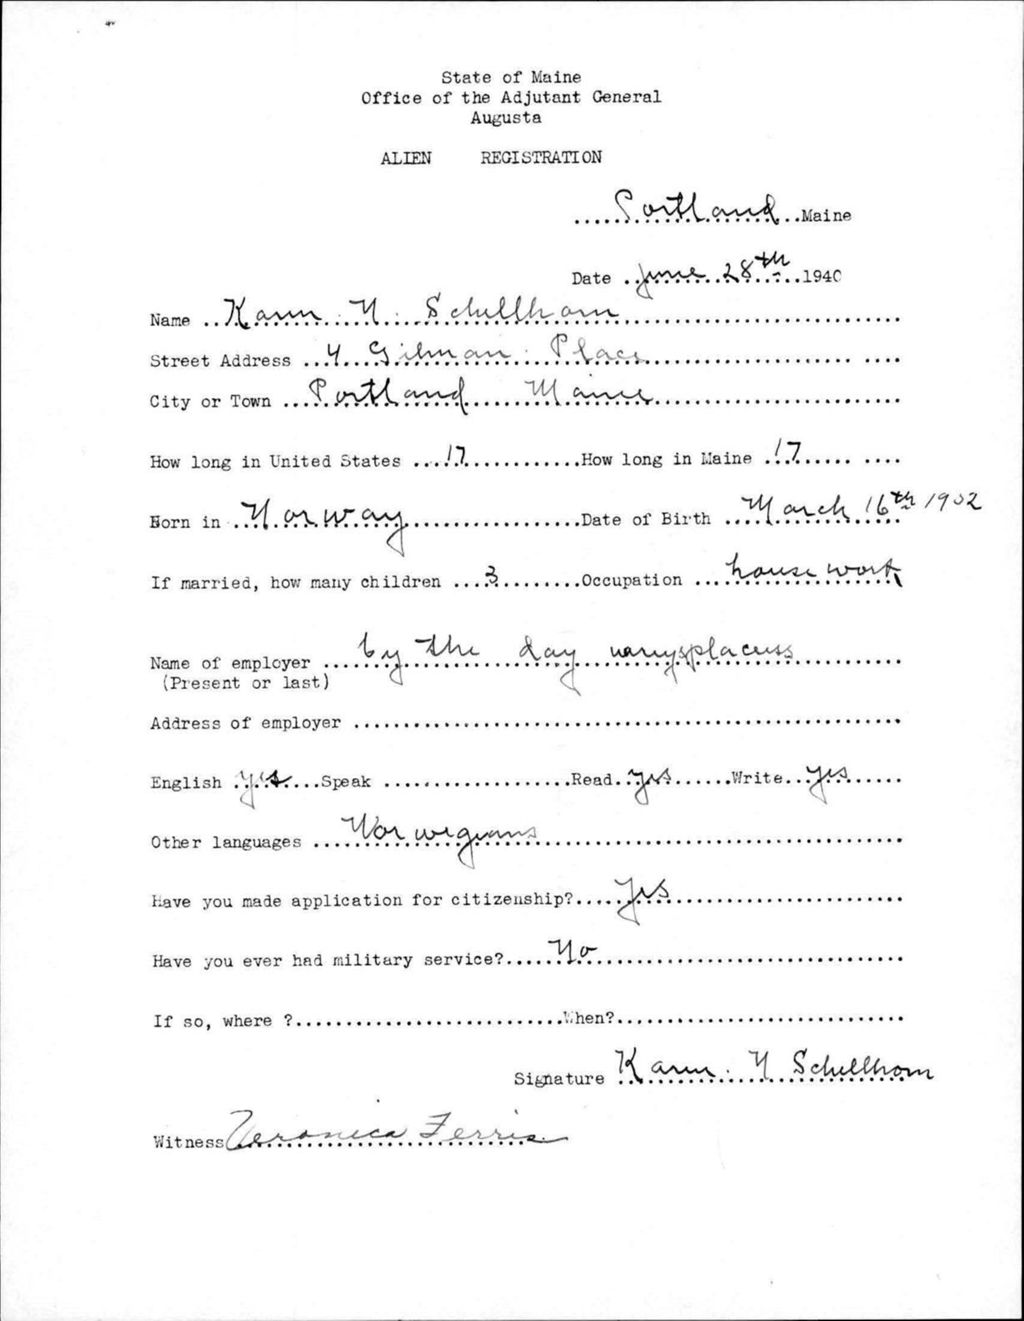 State of Maine
Office of the Adjutant General
Augusta
ALIEN REGISTRATION
Portland Maine
Date June 28th 1940
Name Karen N. Schellhorn
Street Address 4 Gilman Place
City or Town Portland Maine
How long in United States 17 How long in Maine 17
Born in Norway Date of Birth March 16th 1902
If married, how many children 3 Occupation house work
Name of employer by the day
(Present or last)
Address of employer
English yes Speak Read yes Write yes
Other languages Norwegians
Have you made application for citizenship? Yes
Have you ever had military service? No
If so, where ? When?
Signature Karen N Schellhorn
Witness Veronica Ferris